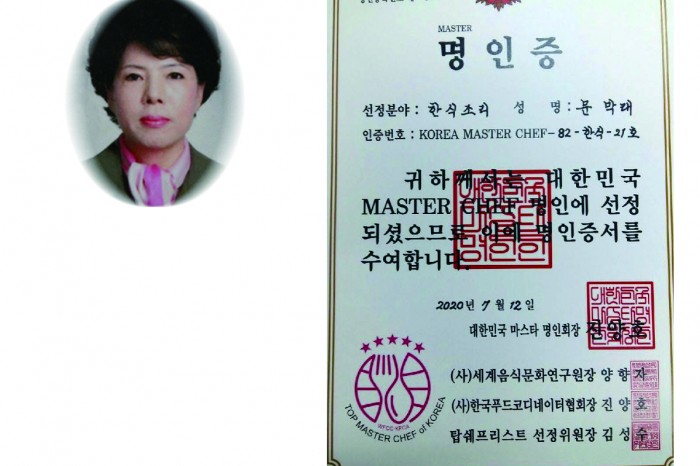 MASTER
명인증
선정분야 : 한식조리 성 명 : 문 박래
인증번호 : KOREA MASTER CHEF-82-한식-21호
귀하께서는 대한민국
MASTER CHEF 명인에 선정
되셨으므로 이에 명인증서를
수여합니다.
2020년 7월 12일
대한민국 마스타 명인회장 진양호
(사)세계음식문화연구원장 양 향 자
(사)한국푸드코디네이터협회장 진 양 호
탑쉐프리스트 선정위원장 김 성 수
TOP MASTER CHEF of KOREA